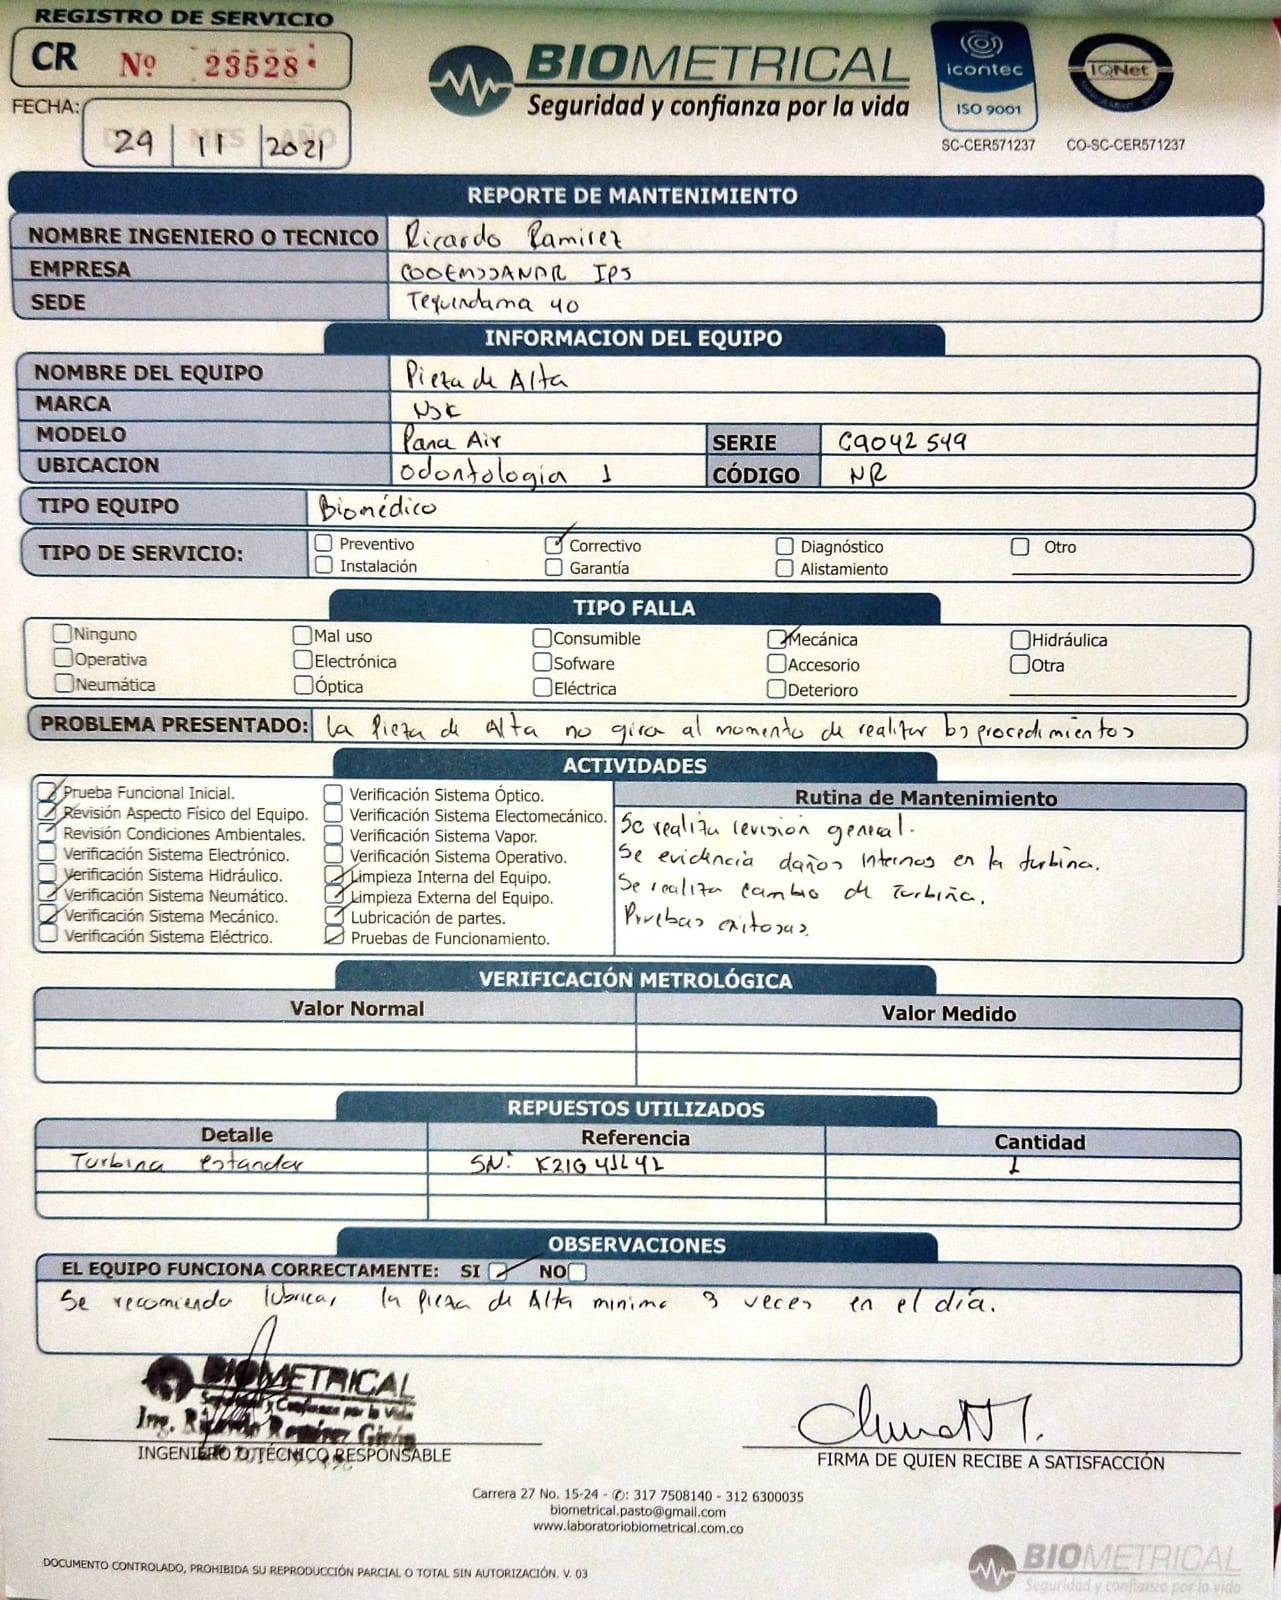 REGISTRO DE SERVICIO
CR Nº 23528
FECHA: 29 11 2021
BIOMETRICAL
Seguridad y confianza por la vida
icontec
ISO 9001
SC-CER571237
IQNet
CO-SC-CER571237
REPORTE DE MANTENIMIENTO
NOMBRE INGENIERO O TECNICO Ricardo Ramirez
EMPRESA COOEMSSANAR IPS
SEDE Tequindama 40
INFORMACION DEL EQUIPO
NOMBRE DEL EQUIPO Pieza de Alta
MARCA NSK
MODELO Pana Air SERIE C9042549
UBICACION Odontologia 1 CÓDIGO NR
TIPO EQUIPO Biomédico
TIPO DE SERVICIO: Preventivo Correctivo Diagnóstico Otro
Instalación Garantía Alistamiento
TIPO FALLA
Ninguno Mal uso Consumible Mecánica Hidráulica
Operativa Electrónica Sofware Accesorio Otra
Neumática Óptica Eléctrica Deterioro
PROBLEMA PRESENTADO: la Pieza de Alta no gira al momento de realizar los procedimientos
ACTIVIDADES
Prueba Funcional Inicial.
Revisión Aspecto Físico del Equipo.
Revisión Condiciones Ambientales.
Verificación Sistema Electrónico.
Verificación Sistema Hidráulico.
Verificación Sistema Neumático.
Verificación Sistema Mecánico.
Verificación Sistema Eléctrico.
Verificación Sistema Óptico.
Verificación Sistema Electomecánico.
Verificación Sistema Vapor.
Verificación Sistema Operativo.
Limpieza Interna del Equipo.
Limpieza Externa del Equipo.
Lubricación de partes.
Pruebas de Funcionamiento.
Rutina de Mantenimiento
Se realiza revisión general.
Se evidencia daños internos en la turbina.
Se realiza cambio de turbina.
Pruebas exitosas.
VERIFICACIÓN METROLÓGICA
Valor Normal Valor Medido
REPUESTOS UTILIZADOS
Detalle Referencia Cantidad
Turbina estandar SN: 1
OBSERVACIONES
EL EQUIPO FUNCIONA CORRECTAMENTE: SI NO
Se recomienda lubricar la pieza de Alta minimo 3 veces en el día.
BIOMETRICAL
Seguridad y Confianza por la Vida
Ing. Ricardo Ramírez Girón
INGENIERO O TÉCNICO RESPONSABLE
FIRMA DE QUIEN RECIBE A SATISFACCIÓN
Carrera 27 No. 15-24 - ✆: 317 7508140 - 312 6300035
biometrical.pasto@gmail.com
www.laboratoriobiometrical.com.co
DOCUMENTO CONTROLADO, PROHIBIDA SU REPRODUCCIÓN PARCIAL O TOTAL SIN AUTORIZACIÓN. V. 03
BIOMETRICAL
Seguridad y confianza por la vida